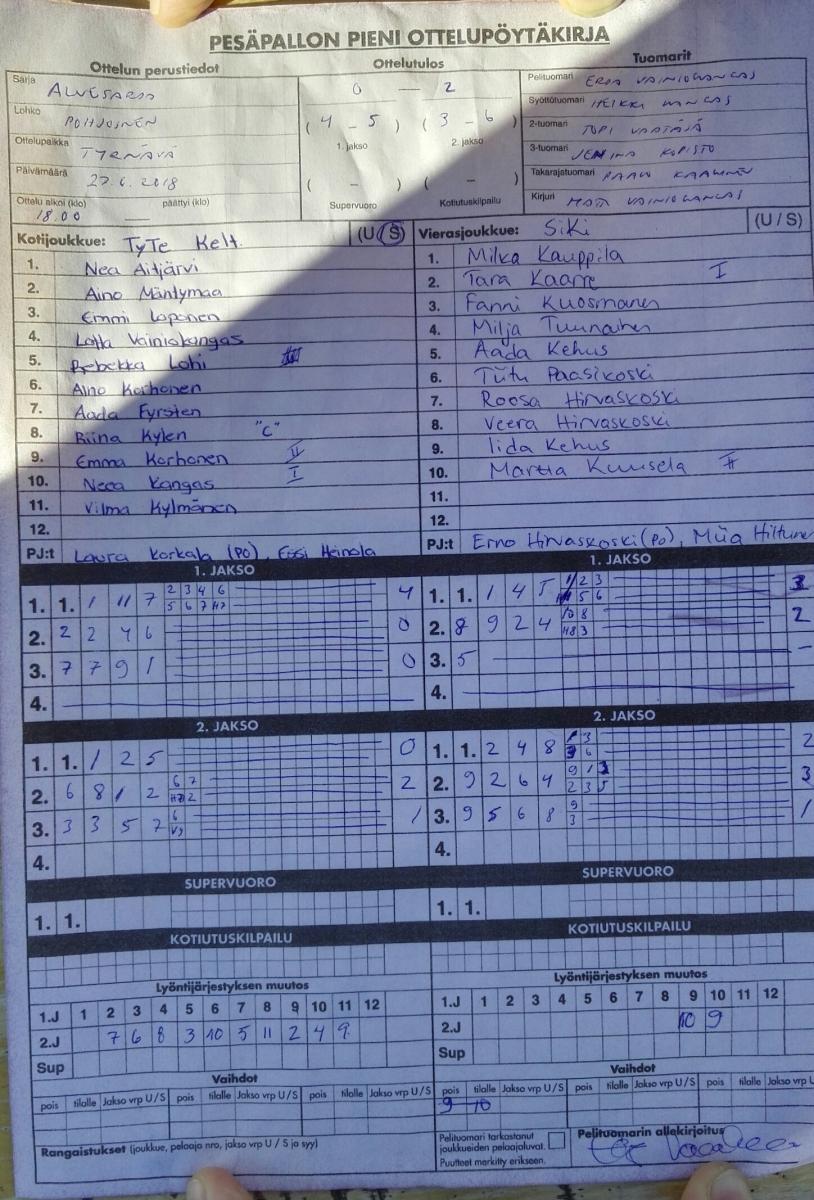 PESÄPALLON PIENI OTTELUPÖYTÄKIRJA
Ottelun perustiedot
Ottelutulos
Tuomarit
Sarja
Lohko POHJOINEN
Ottelupaikka TYRNÄVÄ
Päivämäärä 27.6.2018
Ottelu alkoi (klo) 18.00 päättyi (klo)
0 - 2
( 4 - 5 ) ( 3 - 6 )
1. jakso 2. jakso
( - ) ( - )
Supervuoro Kotiutuskilpailu
Pelituomari VAINIOKANGAS
Syöttötuomari HEIKKI
2-tuomari TOPI
3-tuomari JEMINA KOPISTO
Takarajatuomari
Kirjuri VAINIOKANGAS
Kotijoukkue: TyTe Kelt. (U/S)
1. Nea Aitjärvi
2. Aino Mäntymaa
3. Emmi Loponen
4. Lotta Vainiokangas
5. Rebekka Lohi
6. Aino Korhonen
7. Aada Fyrsten
8. Riina Kylen "C"
9. Emma Korhonen II
10. Neea Kangas I
11. Vilma Kylmänen
12.
PJ:t Laura Korkala (PO), Essi Heinola
Vierasjoukkue: SiKi (U/S)
1. Milka Kauppila
2. Tara Kaarre I
3. Fanni Kuosmanen
4. Milja Tuunainen
5. Aada Kehus
6. Tiitu Paasikoski
7. Roosa Hirvaskoski
8. Veera Hirvaskoski
9. Iida Kehus
10. Martta Kuusela II
11.
12.
PJ:t Erno Hirvaskoski (PO), Miia Hiltunen
1. JAKSO
1. 1. 1 11 7 2 3 4 6 4
5 6 7 H7
2. 2 2 4 6 0
3. 7 7 9 1 0
4.
1. JAKSO
1. 1. 1 4 5 2 3 3
5 6
2. 8 9 2 4 10 8 2
H8 3
3. 5 -
4.
2. JAKSO
1. 1. 1 2 5 0
2. 6 8 1 2 6 7 2
2
3. 3 3 5 7 6 1
V9
4.
2. JAKSO
1. 1. 2 4 8 3 2
6
2. 9 2 6 4 9 1 3
2 3 5
3. 9 5 6 8 9 1
3
4.
SUPERVUORO
1. 1.
SUPERVUORO
1. 1.
KOTIUTUSKILPAILU
KOTIUTUSKILPAILU
Lyöntijärjestyksen muutos
1.J 1 2 3 4 5 6 7 8 9 10 11 12
2.J 7 6 8 3 10 5 11 2 4 9
Sup
Lyöntijärjestyksen muutos
1.J 1 2 3 4 5 6 7 8 9 10 11 12
2.J 10 9
Sup
Vaihdot
pois tilalle Jakso vrp U/S pois tilalle Jakso vrp U/S pois tilalle Jakso vrp U/S
Vaihdot
pois tilalle Jakso vrp U/S pois tilalle Jakso vrp U/S pois tilalle Jakso vrp U
9 10
Rangaistukset (joukkue, pelaaja nro, jakso vrp U / S ja syy)
Pelituomari tarkastanut
joukkueiden pelaajaluvat.
Puutteet merkitty erikseen.
Pelituomarin allekirjoitus